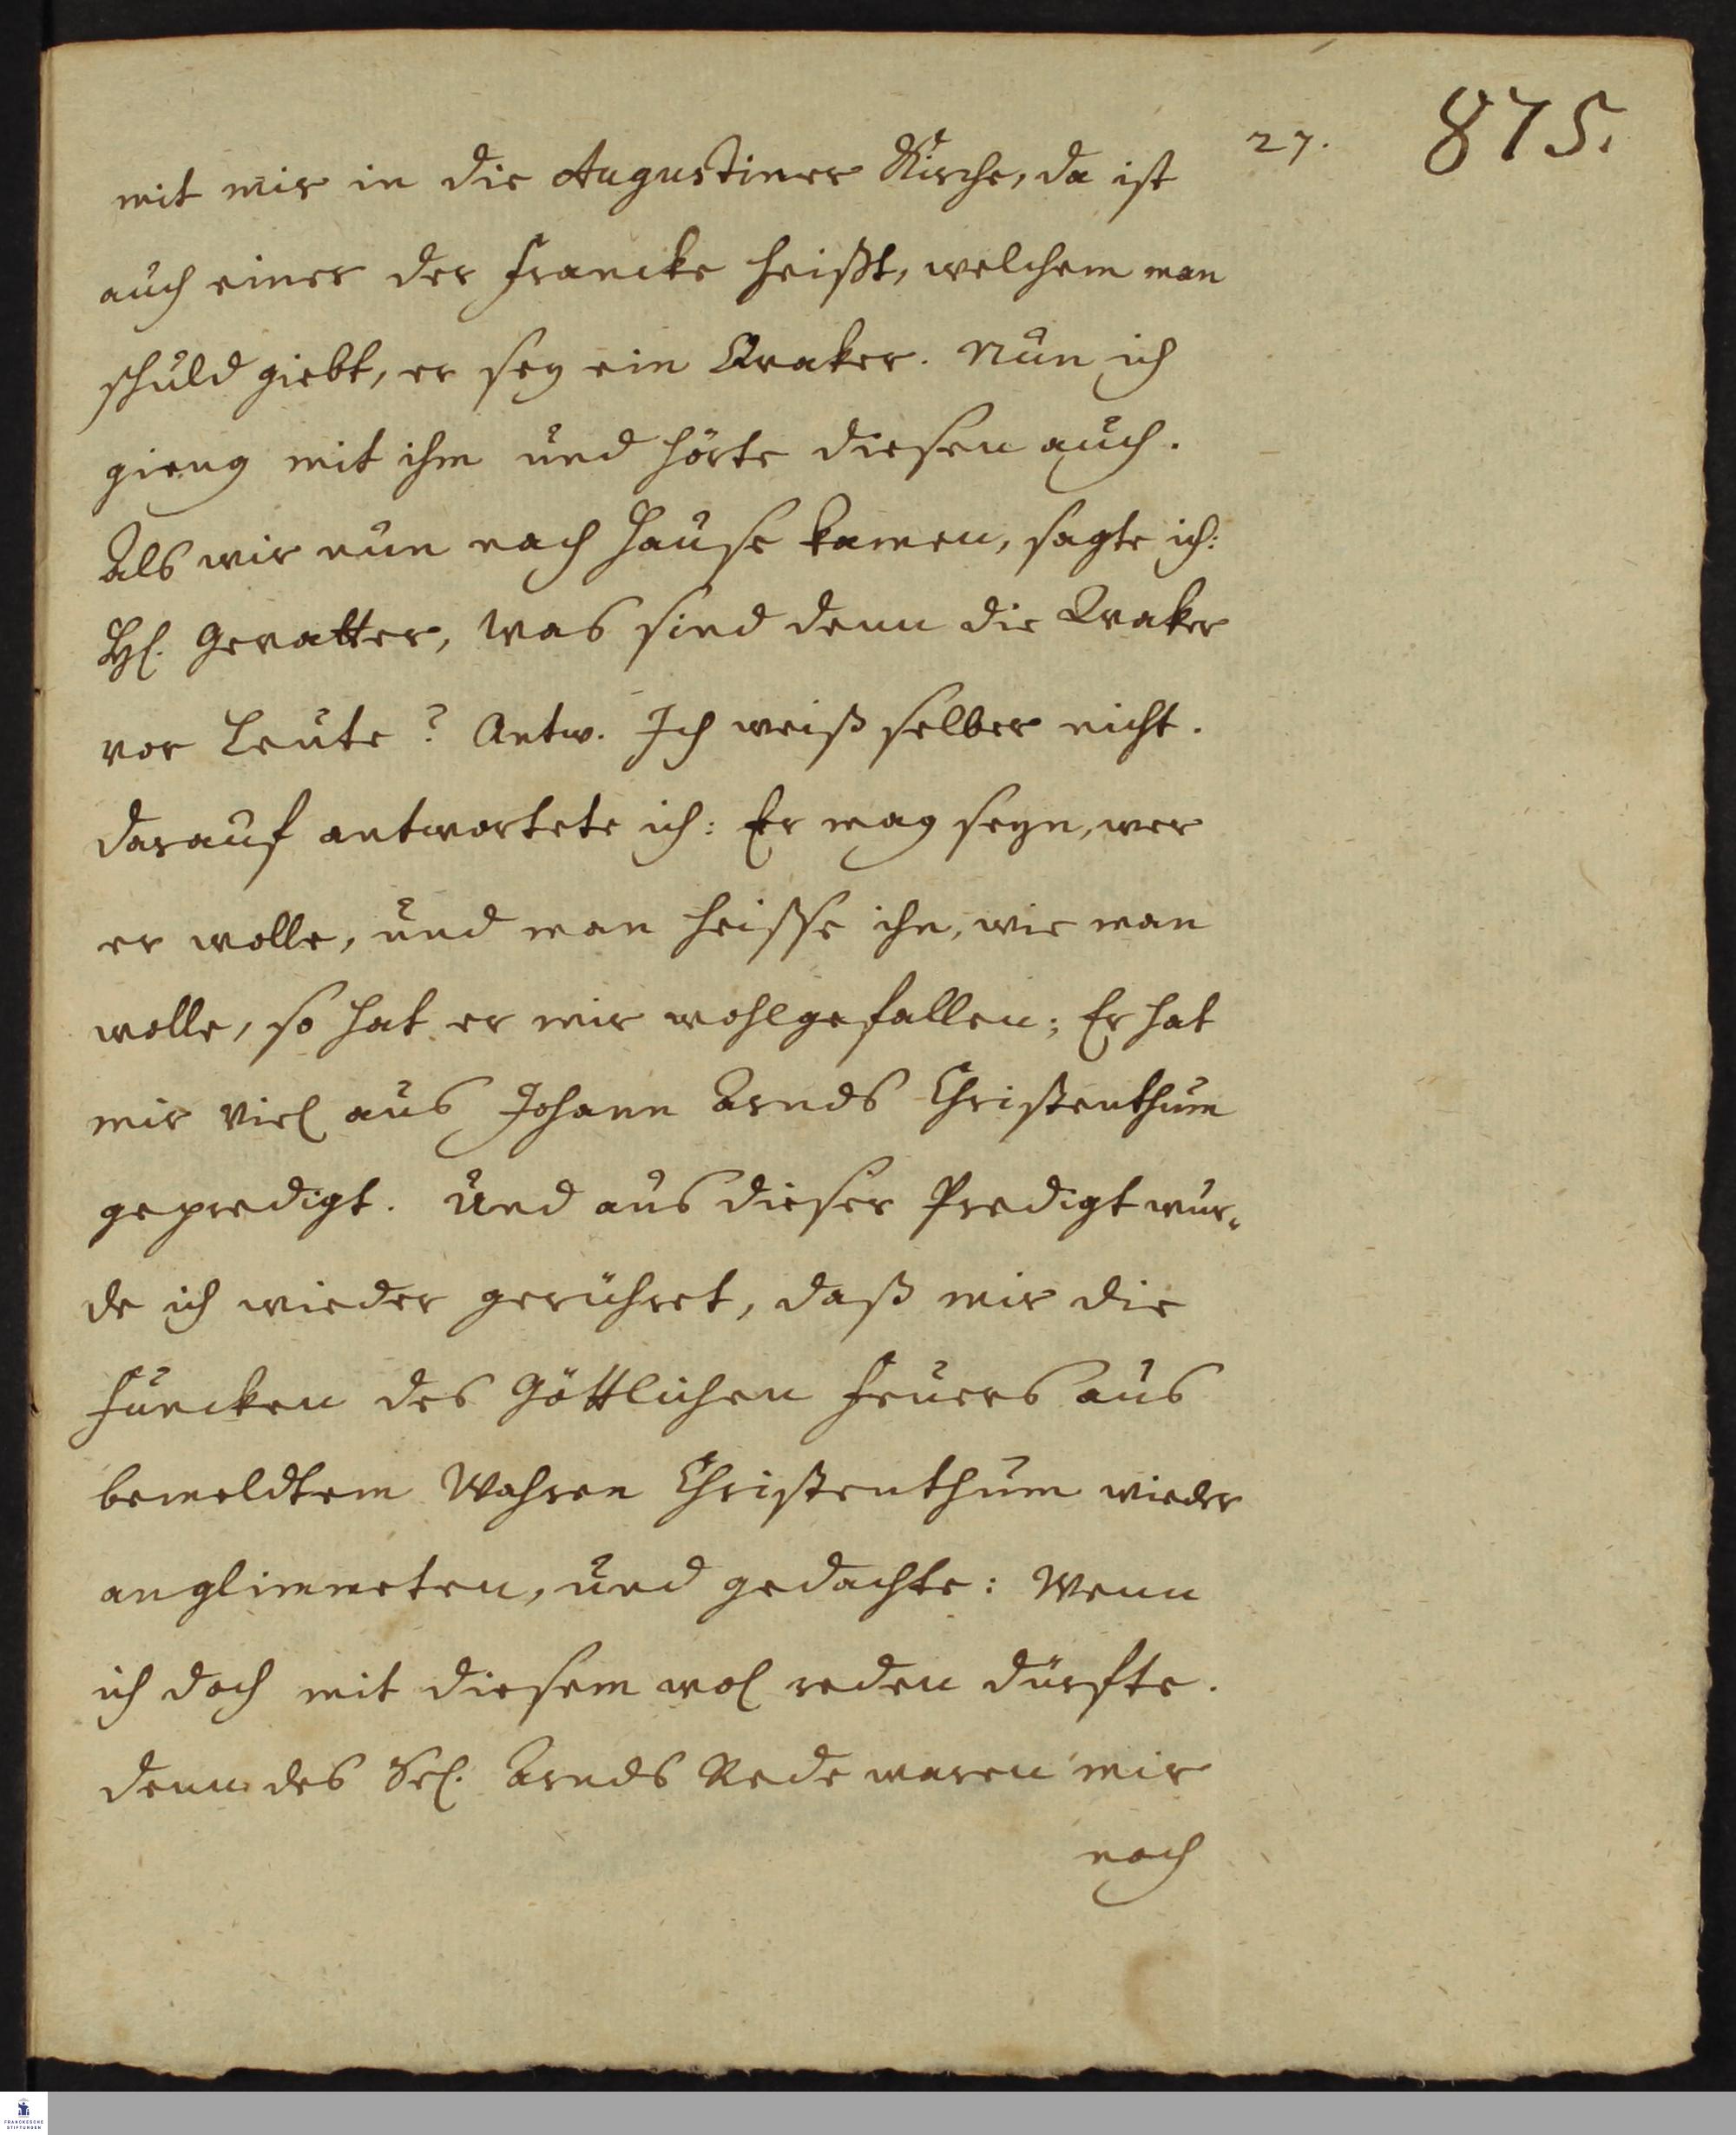 27. 875.
mit mir in die Augustiner Kirche, da ist
auch einer der Francke heißt, welchem man
schuld giebt, er sey ein Qvaker. Nun ich
gieng mit ihm und hörte diesen auch.
Als wir nun nach Hause kamen, sagte ich:
H. Gevatter, was sind denn die Qvaker
vor Leute? Antw. Ich weiß selber nicht.
Darauf antwortete ich: Er mag seyn, wer
er wolle, und man heisse ihn, wie man
wolle, so hat er mir wohlgefallen; Er hat
mir viel aus Johann Arnds Christenthum
gepredigt. Und aus dieser Predigt wur-
de ich wieder gerühret, daß mir die
Funcken des Göttlichen Feuers aus
bemeldtem Wahren Christenthum wieder
anglimmeten, und gedachte: Wenn
ich doch mit diesem wol reden dürfte.
denn des Sel. Arnds Rede waren mir
noch
FRANCKESCHE
STIFTUNGEN